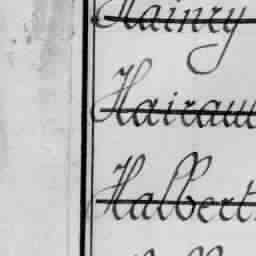 Hainry
Hairau
Halbert